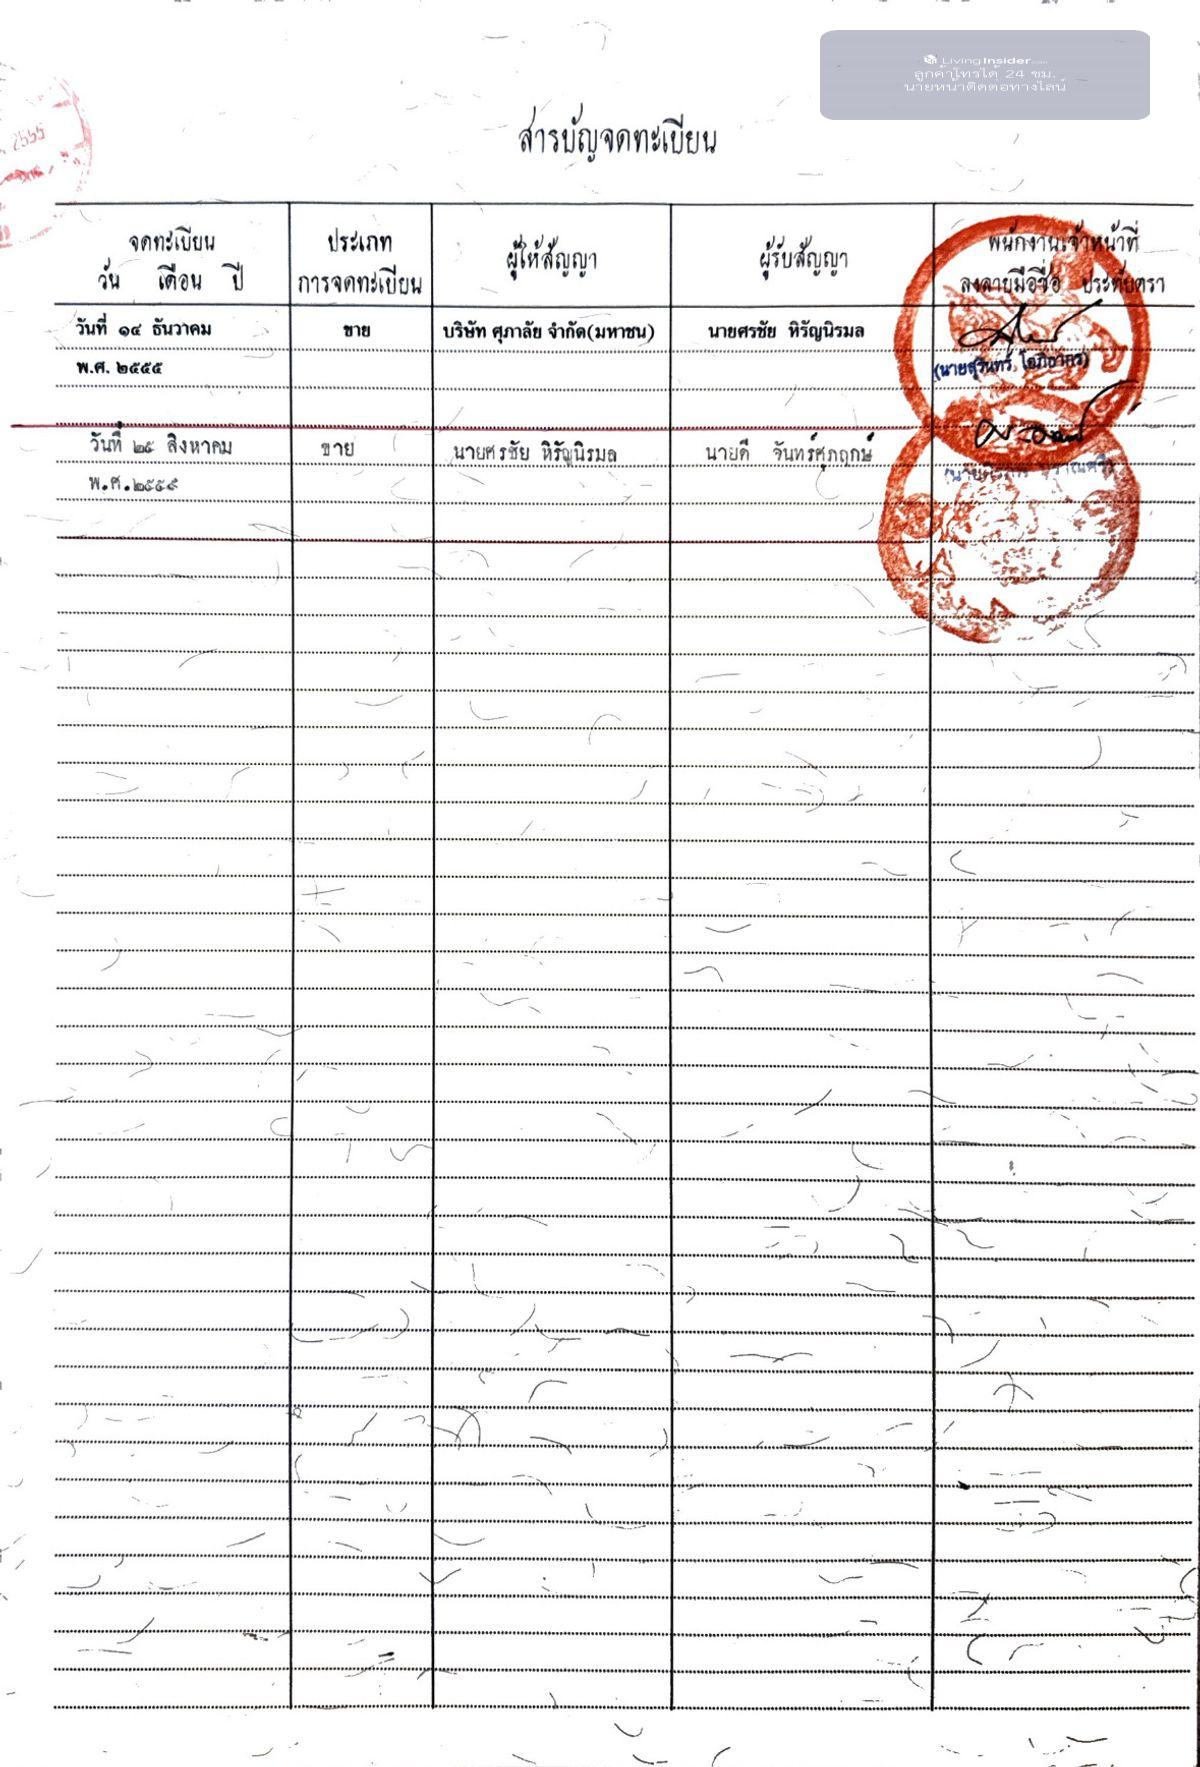 LivingInsider.com
ลูกค้าโทรได้ 24 ชม.
นายหน้าติดต่อทางไลน์
2555
สารบัญจดทะเบียน
จดทะเบียน
วัน เดือน ปี
ประเภท
การจดทะเบียน
ผู้ให้สัญญา
ผู้รับสัญญา
พนักงานเจ้าหน้าที่
ลงลายมือชื่อ ประทับตรา
วันที่ ๑๔ ธันวาคม ขาย บริษัท ศุภาลัย จำกัด(มหาชน) นายศรชัย หิรัญนิรมล
พ.ศ. ๒๕๕๕
(นายสุรินทร์ โอภิธากร)
วันที่ ๒๕ สิงหาคม ขาย นายศรชัย หิรัญนิรมล นายดี จันทร์ศุภฤกษ์
พ.ศ.๒๕๕๙